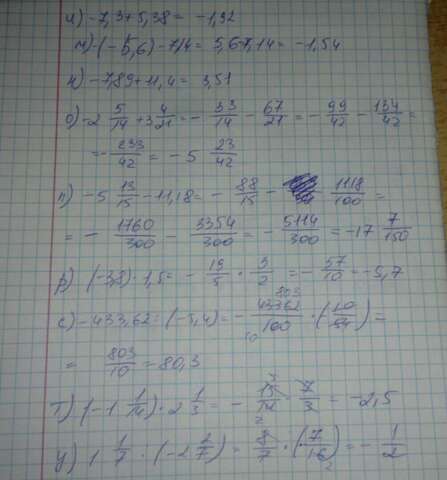 л) -7,3+5,38= -1,92
м) -(-5,6)-7,14= 5,6-7,14= -1,54
н) -7,89+11,4= 3,51
о) -2 5/14 +3 4/21 = - 33/14 - 67/21 = - 99/42 - 134/42 =
= - 233/42 = -5 23/42
п) -5 13/15 -11,18= - 88/15 - 1118/100 =
= - 1760/300 - 3354/300 = - 5114/300 = -17 7/150
р) (-3,8)·1,5= - 19/5 · 3/2 = - 57/10 = -5,7
с) -433,62:(-5,4)= - 43362/100 · (10/54) =
= 803/10 = 80,3
т) (-1 1/14)·2 1/3 = - 15/14 · 7/3 = -2,5
у) 1 1/7 · (-2 2/7) = 8/7 · (-7/16) = - 1/2